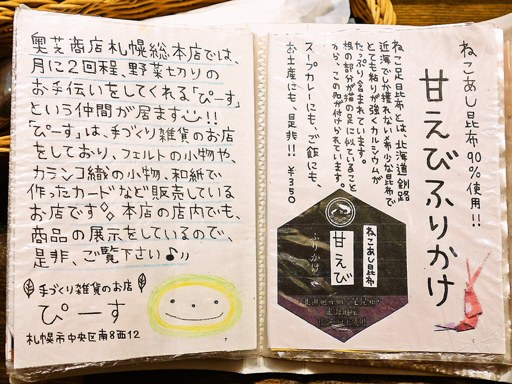 奥芝商店札幌総本店では、
月に2回程、野菜切りの
お手伝いをしてくれる「ぴーす」
という仲間が居ます!!
「ぴーす」は、手づくり雑貨のお店
をしており、フェルトの小物や、
カランコ織の小物、和紙で
作ったカードなど販売している
お店です 本店の店内でも、
商品の展示をしているので、
是非、ご覧下さい♪
手づくり雑貨のお店
ぴーす
札幌市中央区南8西12
ねこあし昆布90%使用!!
甘えびふりかけ
ねこ足昆布とは、北海道釧路
近海でしか獲れない希少な昆布で
とても粘りが強くカルシウムが
たっぷり含まれています。
根の部分が猫の足に似ていること
から、この名が付けられています。
スープカレーにも、ご飯にも、
お土産にも、是非!! ¥350
ねこあし昆布
甘えび
ふりかけ